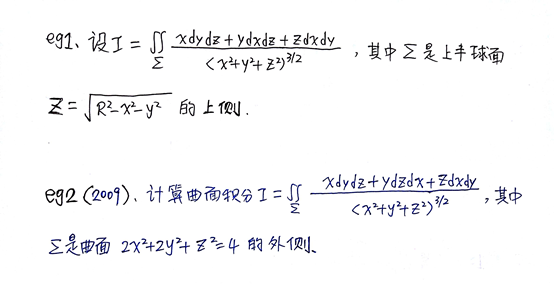 eg1、设I=∬_Σ (xdydz+ydxdz+zdxdy)/(x²+y²+z²)^{3/2}，其中Σ是上半球面
Z=√(R²-x²-y²) 的上侧.
eg2 (2009)、计算曲面积分I=∬_Σ (xdydz+ydzdx+zdxdy)/(x²+y²+z²)^{3/2}，其中
Σ是曲面 2x²+2y²+z²=4 的外侧.